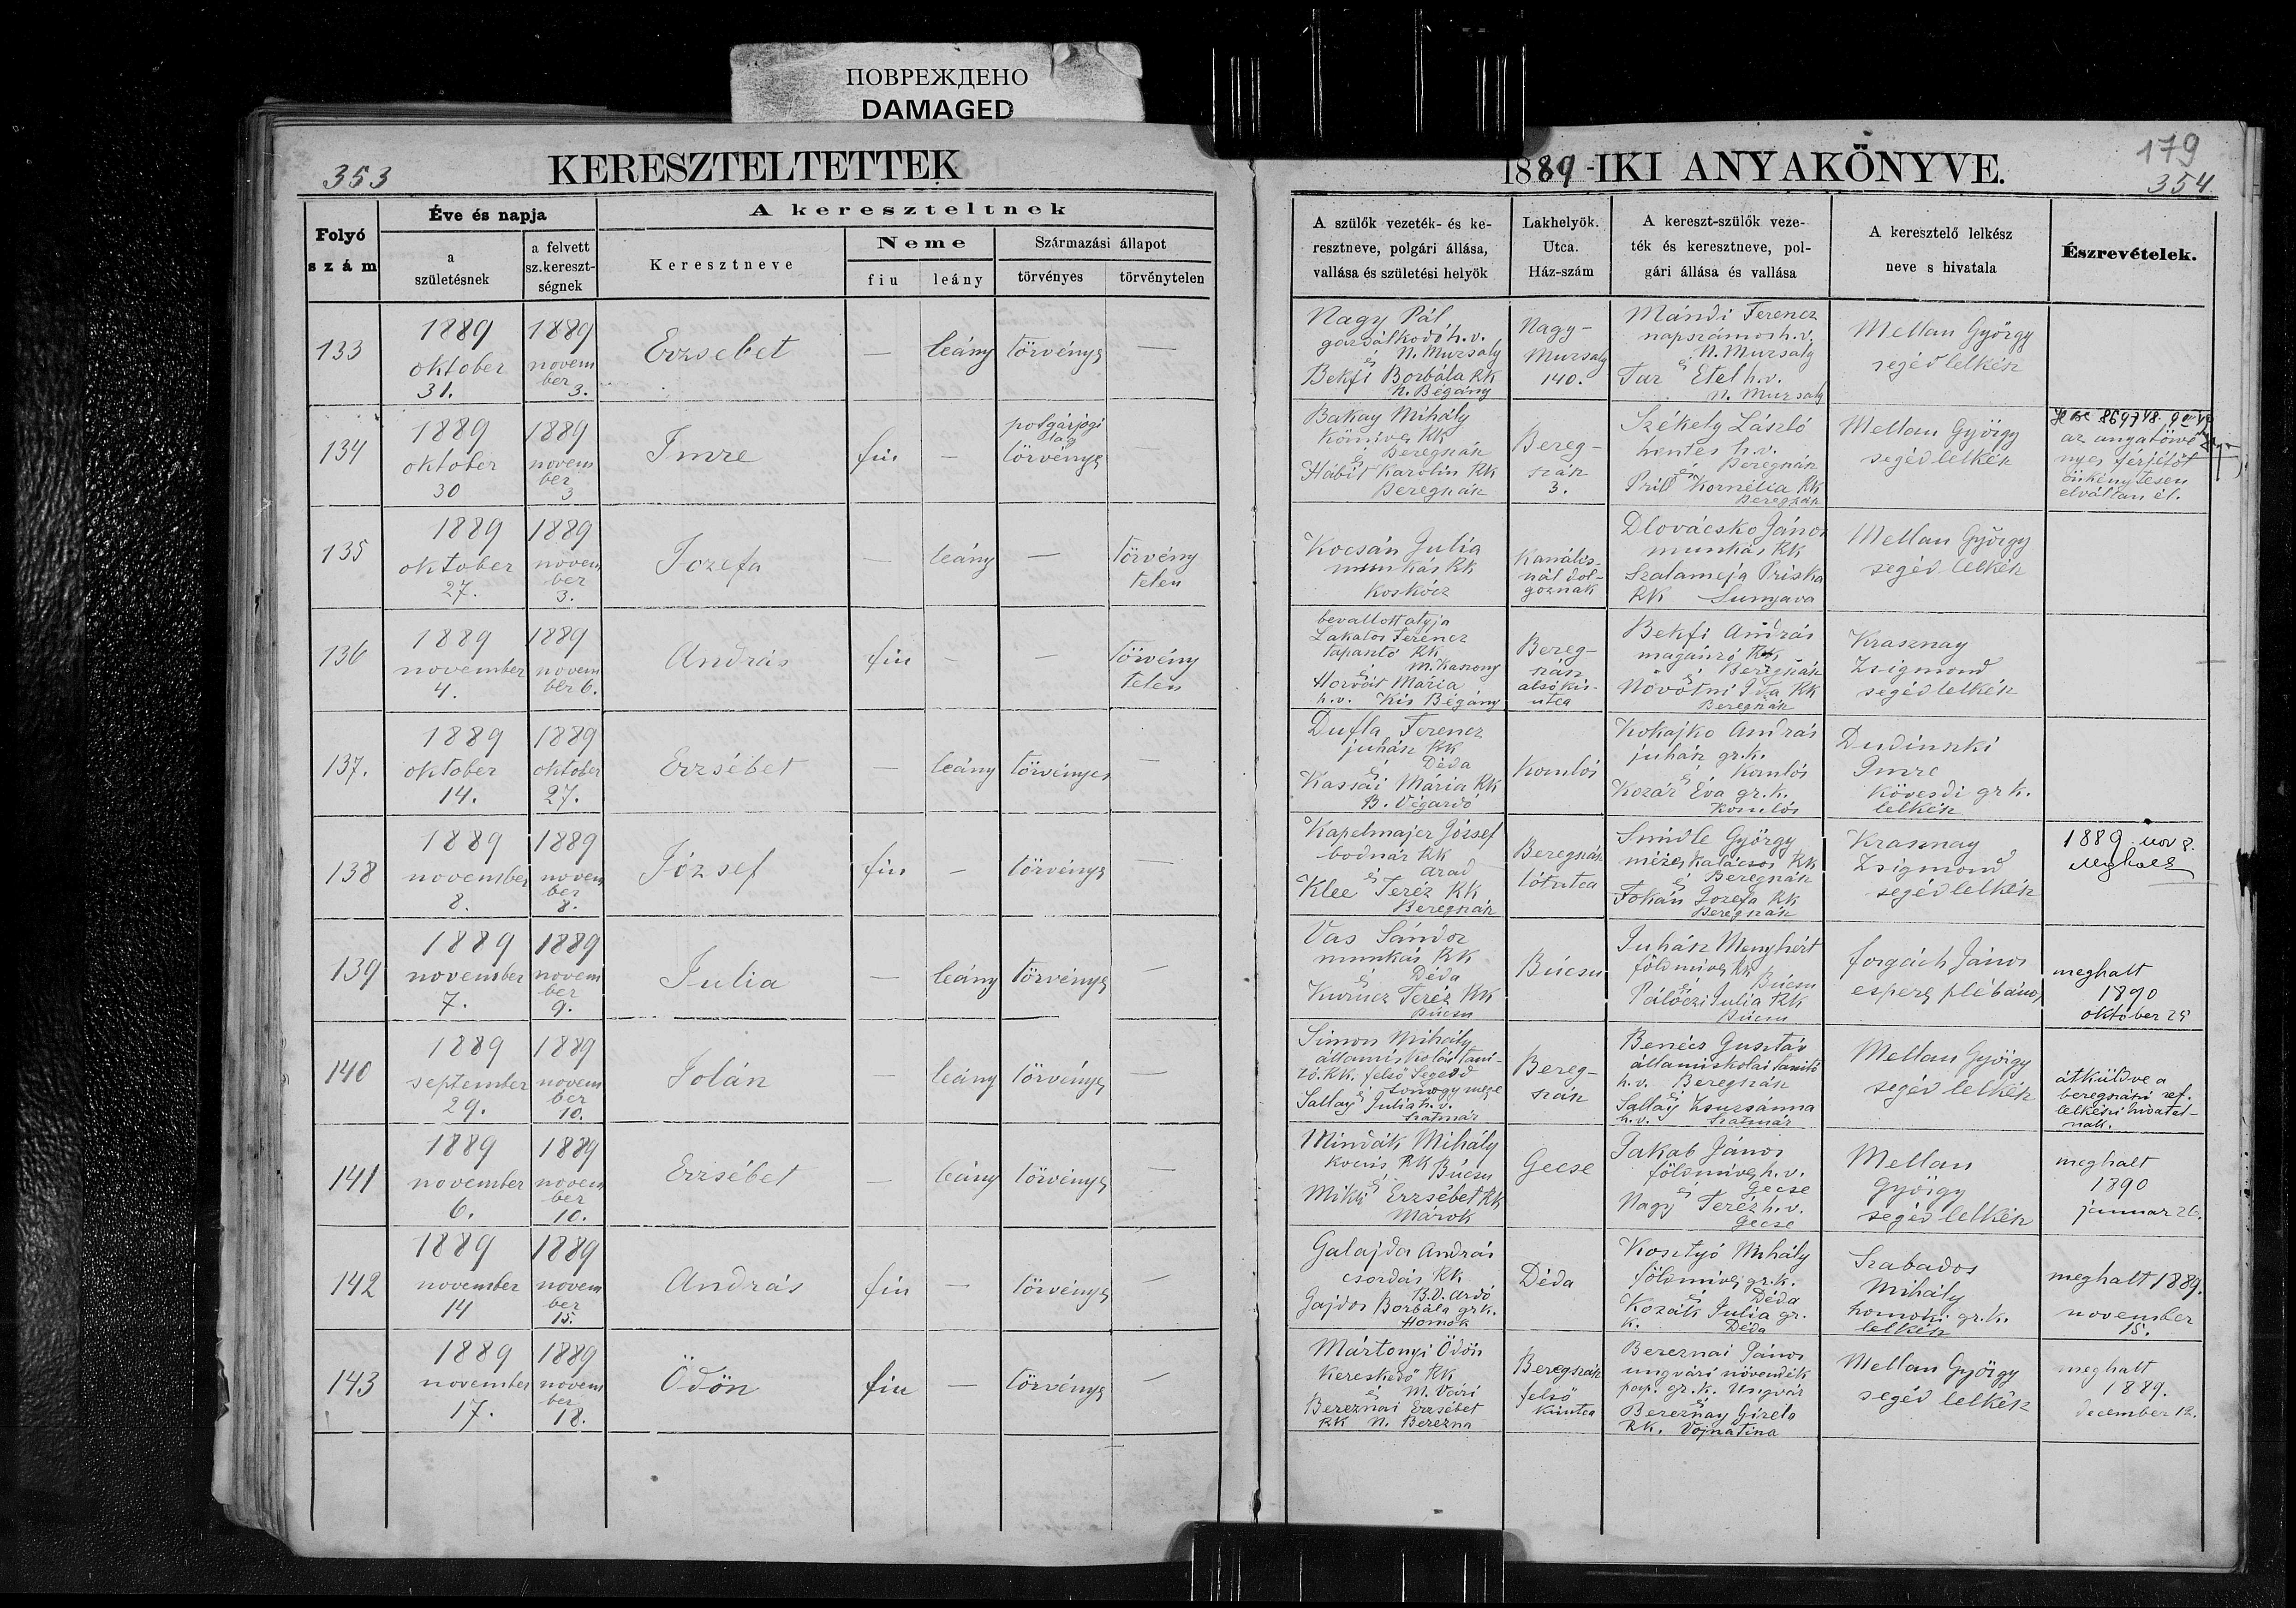 ПОВРЕЖДЕНО
DAMAGED
353
KERESZTELTETTEK
1889-IKI ANYAKÖNYVE.
179
354
Folyó szám
Éve és napja
a születésnek
a felvett sz. kereszt-ségnek
A kereszteltnek
Keresztneve
Neme
fiu
leány
Származási állapot
törvényes
törvénytelen
A szülők vezeték- és ke-
resztneve, polgári állása,
vallása és születési helyök
Lakhelyök.
Utca.
Ház-szám
A kereszt-szülők veze-
ték és keresztneve, pol-
gári állása és vallása
A keresztelő lelkész
neve s hivatala
Észrevételek.
133
1889 oktober 31.
1889 november 3.
Erzsebet
—
leány
törvényes
—
Nagy Pál
gazdálkodó h.v.
és N. Muzsaly
Bekfi Borbála RK
N. Bégány
Nagy-
Muzsaly
140.
Mándi Ferencz
napszámos h.v.
és N. Muzsaly
Tar Etel h.v.
N. Muzsaly
Mellan György
segéd lelkész
134
1889 oktober 30
1889 november 3
Imre
fiu
—
polgárjogilag
törvényes
—
Bakay Mihály
Kömives RK
és Beregszász
Hábit Karolin RK
Beregszász
Bereg-
szász
3.
Székely László
hentes h.v.
és Beregszász
Pril Kornélia RK
Beregszász
Mellan György
segéd lelkész
az anya törvé
nyes férjétöl
önkénytesen
elváltan él.
135
1889 oktober 27.
1889 november 3.
Jozefa
—
leány
—
törvény
telen
Kocsán Julia
munkás RK
Koskócz
Kanális-
nál dol-
goznak
Dlovácsko János
munkás RK
Szalameja Priska
RK Sunyava
Mellan György
segéd lelkész
136
1889 november 4.
1889 november 6.
András
fiu
—
—
törvény
telen
bevallott atyja
Lakatos Ferencz
tapasztó RK
és M. Kaszony
Horvát Mária
h.v. Kis Bégány
Bereg-
szász
alsó kis-
utca
Bekfi András
magánzó RK
és Beregszász
Novotni Ida RK
Beregszász
Krasznay
Zsigmond
segéd lelkész
137.
1889 oktober 14.
1889 oktober 27.
Erzsébet
—
leány
törvényes
—
Dufla Ferencz
juhász RK
és Déda
Kassai Mária RK
B. Végardó
Komlós
Kokajko András
juhász gr.k.
és Komlós
Kozár Éva gr.k.
Komlós
Dudinszki
Imre
Kövesdi gr k.
lelkész
138
1889 november 8.
1889 november 8.
József
fiu
—
törvényes
—
Kapelmajer József
bodnár RK
és Arad
Klee Teréz RK
Beregszász
Beregszász
tótutca
Smidle György
mézeskalácsos RK
és Beregszász
Fokán Jozefa RK
Beregszász
Krasznay
Zsigmond
segéd lelkész
1889 nov 8.
meghalt
139
1889 november 7.
1889 november 9.
Julia
—
leány
törvényes
—
Vas Sándor
munkás RK
és Déda
Kurucz Teréz RK
Búcsu
Búcsu
Juhász Menyhért
földmives RK
és Búcsu
Pálóczi Julia RK
Búcsu
forgách János
esperes plébános
meghalt
1890
október 25
140
1889 september 29.
1889 november 10.
Jolán
—
leány
törvényes
—
Simon Mihály
államiskolai tani-
tó. RK. felső Segesd
és Somogy megye
Sallay Julia h.v.
Szatmár
Bereg-
szász
Benécs Gusztáv
államiskolai tanitó
h.v. Beregszász
és
Sallay Zsuzsánna
h.v. Szatmár
Mellan György
segéd lelkész
átküldve a
beregszászi ref.
lelkészi hivatal-
nak.
141
1889 november 6.
1889 november 10.
Erzsébet
—
leány
törvényes
—
Mindák Mihály
kocsis RK Búcsu
és
Mikli Erzsébet RK
Márok
Gecse
Jakab János
földmives h.v.
és Gecse
Nagy Teréz h.v.
Gecse
Mellan
György
segéd lelkész
meghalt
1890
januar 26.
142
1889 november 14
1889 november 15.
András
fiu
—
törvényes
—
Galajda András
csordás RK
B.V. Ardó
Gajdos Borbála gr k.
Homok
Déda
Kosztyó Mihály
földmives gr.k.
és Déda
Kozák Julia gr.
k. Déda
Szabados
Mihály
homoki gr.k.
lelkész
meghalt 1889.
november
15.
143
1889 november 17.
1889 november 18.
Ödön
fiu
—
törvényes
—
Mártonyi Ödön
Kereskedő RK
és M. Vári
Bereznai Erzsébet
RK N. Berezna
Beregszász
felső
Kisutca
Bereznai János
ungvári növendék
pap. gr.k. Ungvár
és
Bereznay Gizela
RK. Vojnatina
Mellan György
segéd lelkész
meghalt
1889.
december 12.